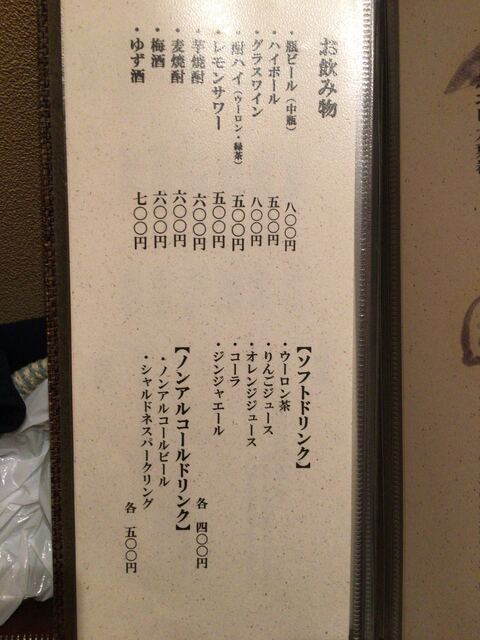 お飲み物
・瓶ビール（中瓶） 八〇〇円
・ハイボール 五〇〇円
・グラスワイン 八〇〇円
・酎ハイ（ウーロン・緑茶） 五〇〇円
・レモンサワー 五〇〇円
・芋焼酎 六〇〇円
・麦焼酎 六〇〇円
・梅酒 六〇〇円
・ゆず酒 七〇〇円
【ソフトドリンク】
・ウーロン茶
・りんごジュース
・オレンジジュース
・コーラ
・ジンジャエール
各 四〇〇円
【ノンアルコールドリンク】
・ノンアルコールビール
・シャルドネスパークリング
各 五〇〇円